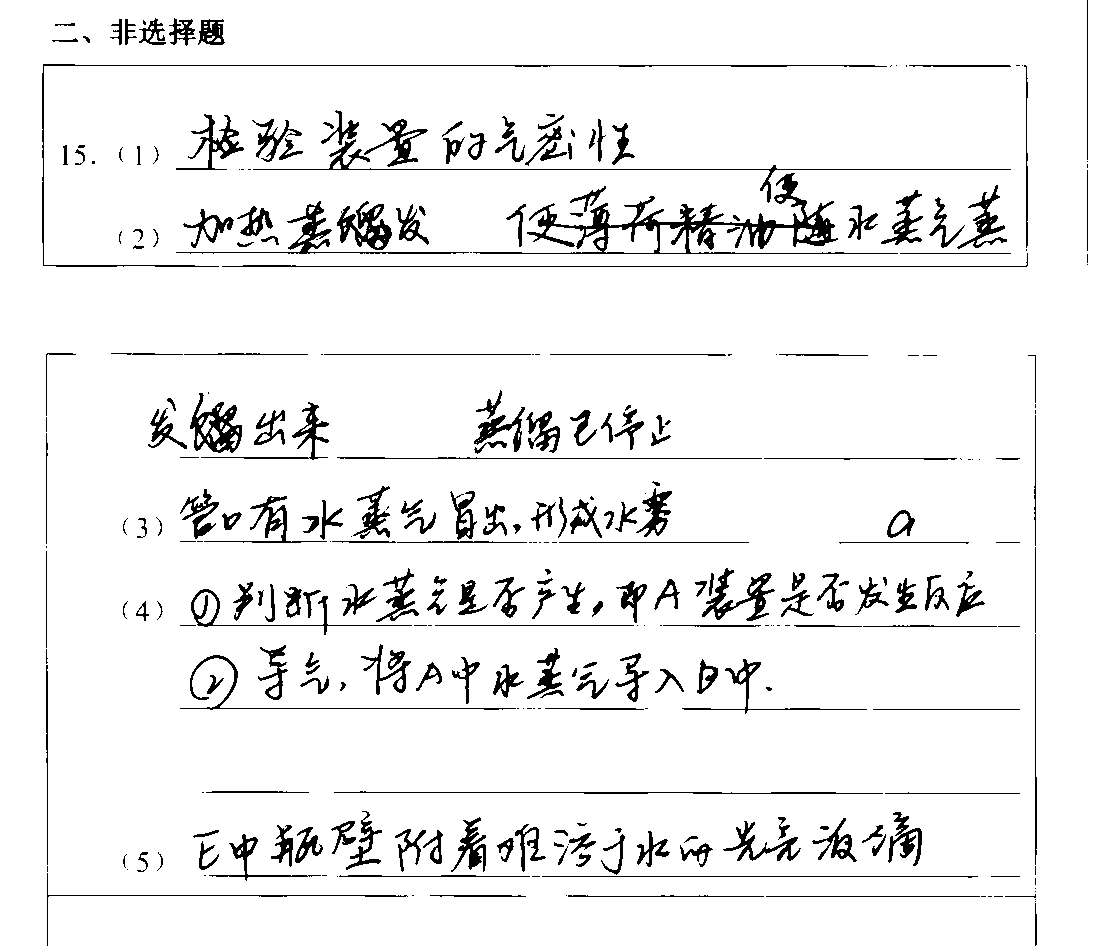 二、非选择题
15.（1）检验装置的气密性
（2）加热蒸馏发 使薄荷精油随使水蒸气蒸
发馏出来 蒸馏已停止
（3）管口有水蒸气冒出，形成水雾 a
（4）①判断水蒸气是否产生，即A装置是否发生反应
②导气，将A中水蒸气导入B中.
（5）E中瓶壁附着难溶于水的光亮液滴